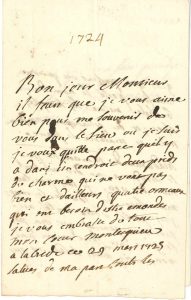 1724
Bon jour Monsieur
il faut que je vous aime
bien pour me souvenir de
vous dans le lieu ou je suis
je vous quitte parce quil y
a dans un endroit deux pieds
de charme qui ne vont pas
bien et dailleurs quatre ormeaux
qui ont besoin destre emondes
je vous embrasse de tout
mon cœur Montesquieu
a la brede ce 29 mars 1725
salues de ma part touts les